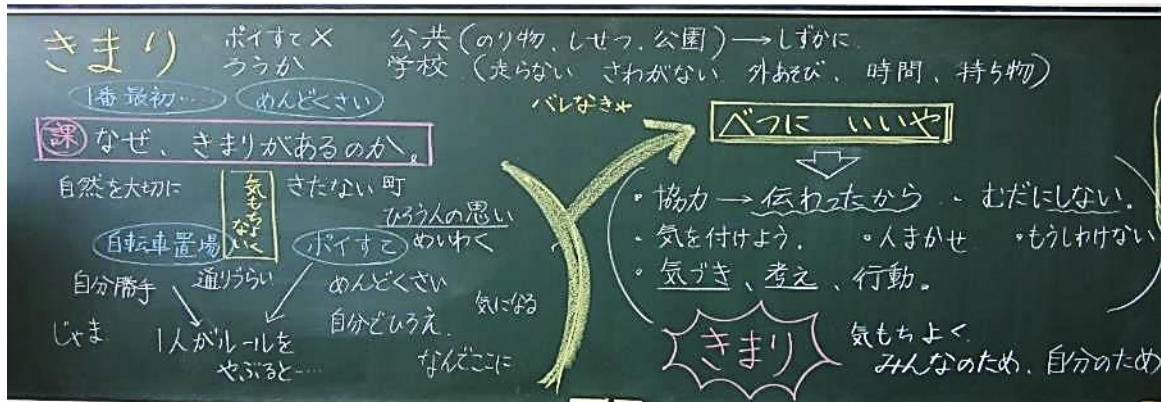 きまり
ポイすて×
ろうか
公共(のり物、しせつ、公園)→しずかに
学校(走らない さわがない 外あそび、時間、持ち物)
1番最初… めんどくさい
課 なぜ、きまりがあるのか。
自然を大切に
気もちよくない
きたない町
ひろう人の思い
めいわく
自転車置場
ポイすて
自分勝手
通りづらい
めんどくさい
じゃま
自分でひろえ.
気になる
なんでここに
1人がルールを
やぶると…
バレなきゃ
べつに いいや
・協力→伝わったから・むだにしない。
・気を付けよう. ・人まかせ ・もうしわけない
・気づき、考え、行動。
きまり
気もちよく.
みんなのため、自分のため